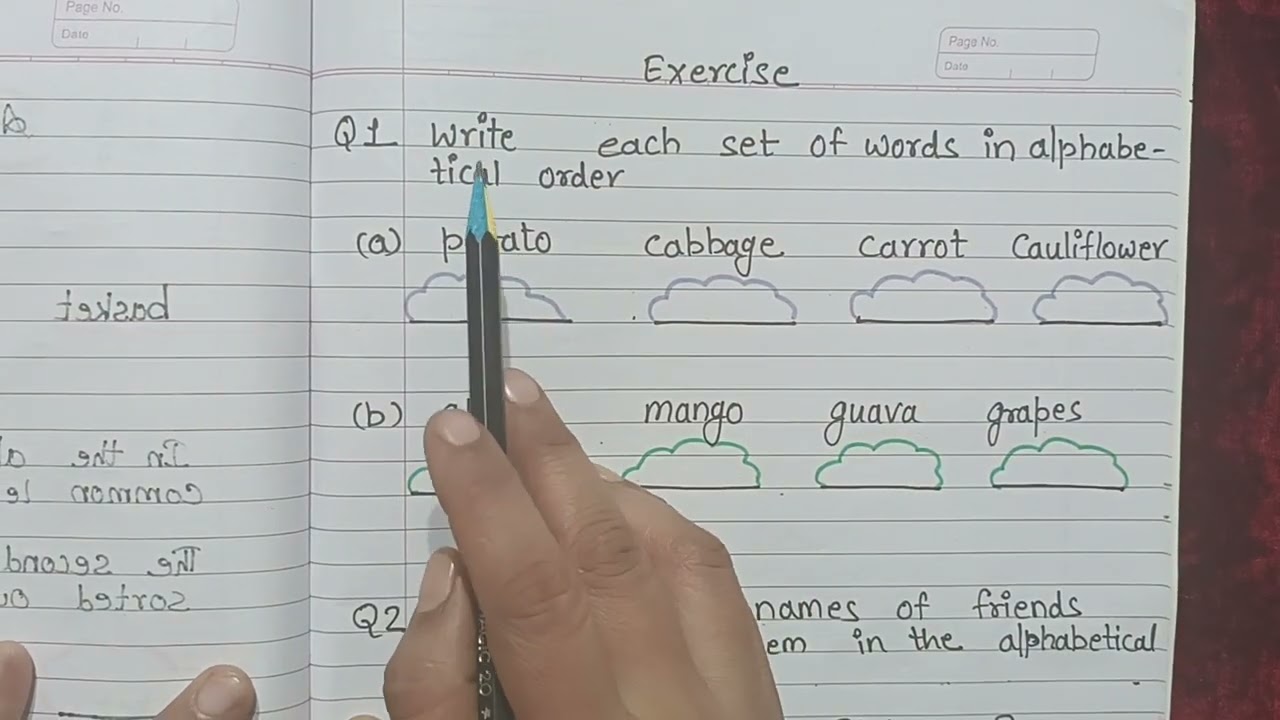 Page No.
Date
Page No.
Date
Exercise
Q1 Write each set of words in alphabe-
tical order
(a) potato cabbage carrot cauliflower
basket
(b) mango guava grapes
In the
common
The second
sorted
Q2 names of friends
in the alphabetical